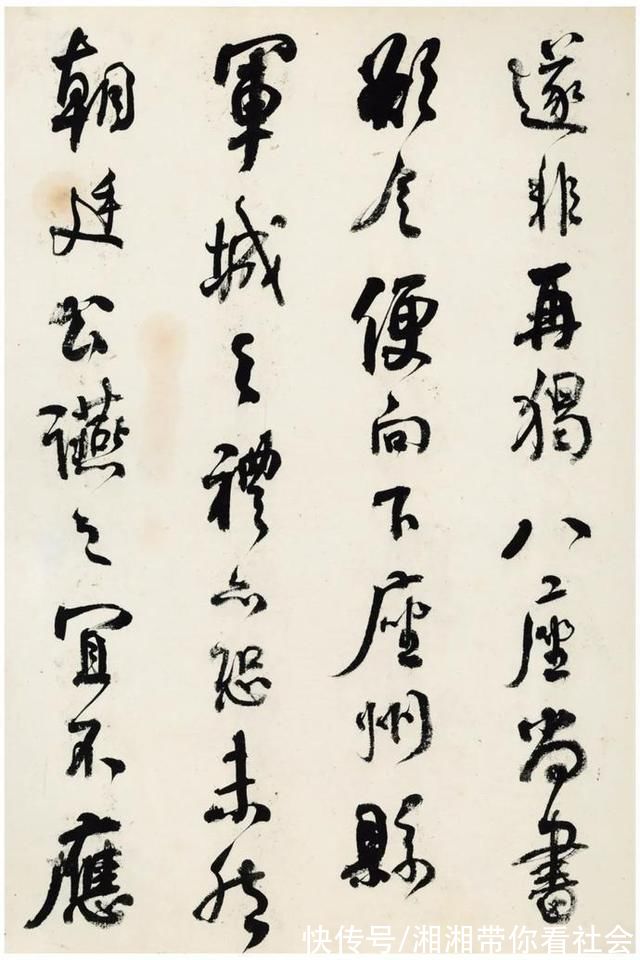 遂非再猲八座尚書
欲令便向下座州縣
軍城之禮亦恐未然
朝廷公讌之宜不應
快传号/湘湘带你看社会